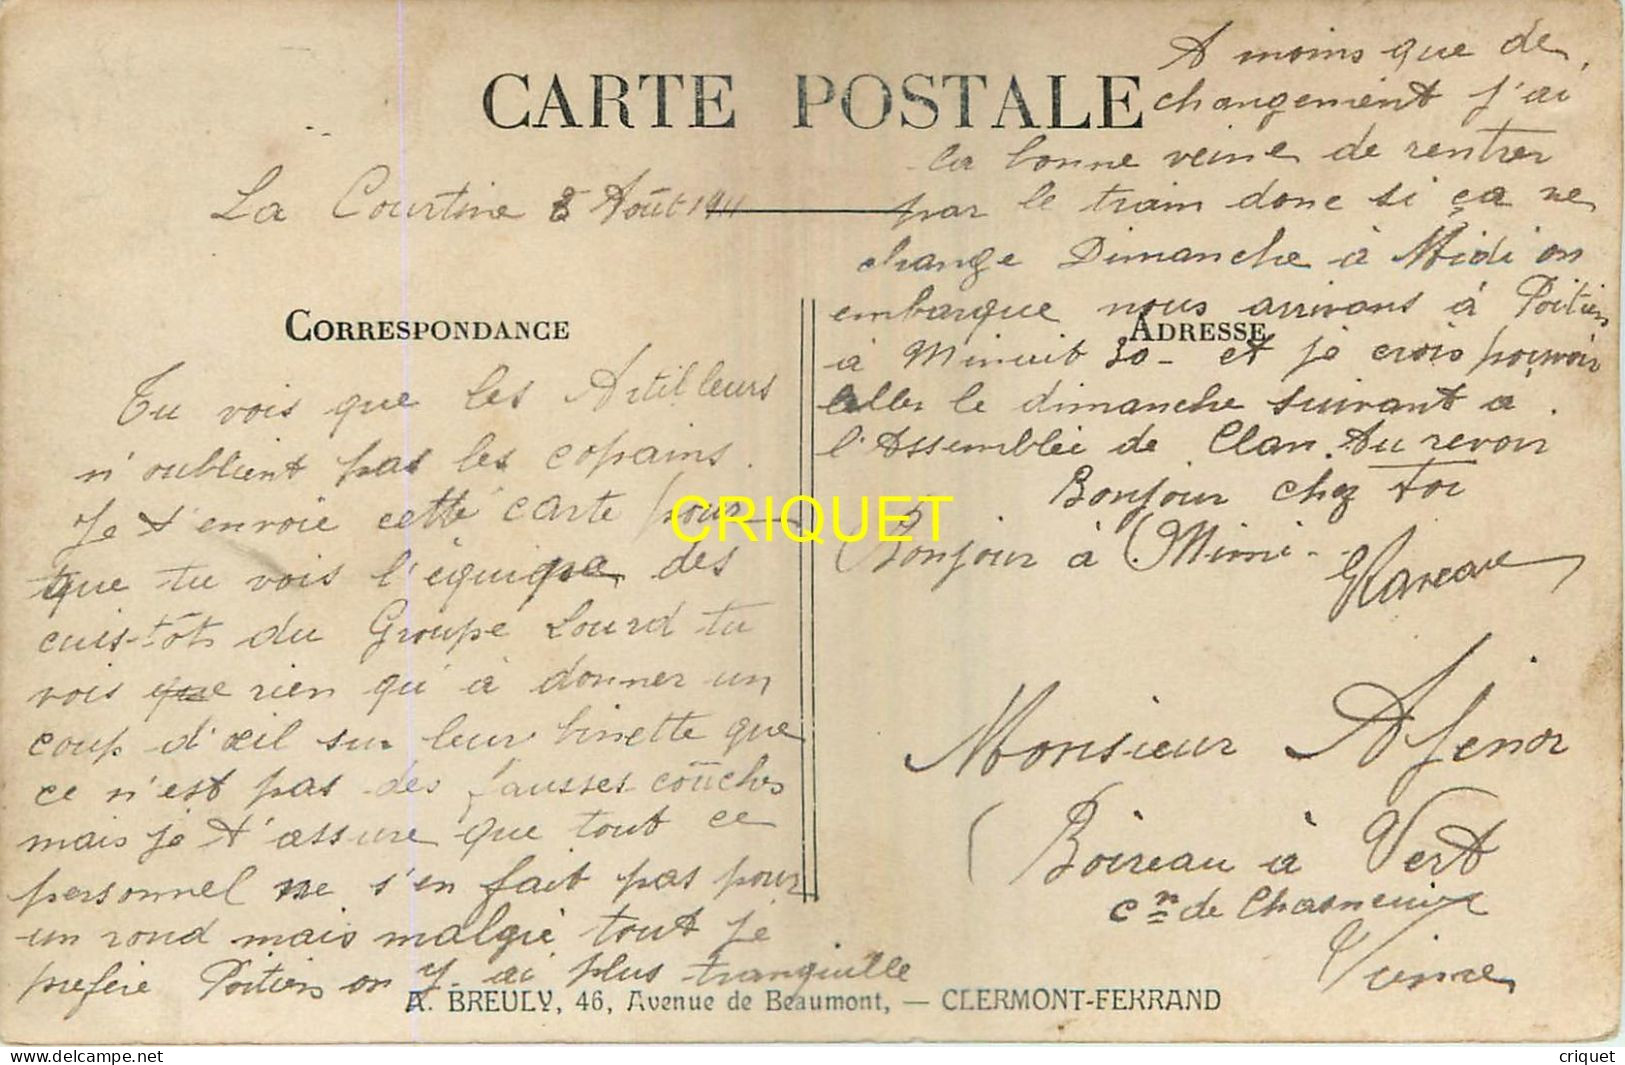 CARTE POSTALE
La Courtine 8 Août 1911
CORRESPONDANCE
Tu vois que les Artilleurs
n'oublient pas les copains.
Je t'envoie cette carte pour
que tu vois l'équipe des
cuis-tôts du Groupe Lourd tu
vois que rien qu'à donner un
coup d'œil sur leur binette que
ce n'est pas des fausses couches
mais je t'assure que tout ce
personnel ne s'en fait pas pour
un rond mais malgré tout je
prefère Poitiers on y ai plus tranquille
A moins que de
changement j'ai
la bonne veine de rentrer
par le train donc si ça ne
change Dimanche à Midi on
embarque nous arrivons à Poitiers
ADRESSE
à Minuit 30 - et je crois pouvoir
aller le dimanche suivant a
l'Assemblée de Clan. Au revoir
Bonjour chez toi
Bonjour à Mimi -
Monsieur Afenor
Boireau à Vert
Cne de Chasneuil
Vienne
A. BREULY, 46, Avenue de Beaumont, — CLERMONT-FERRAND
CRIQUET
www.delcampe.net
criquet